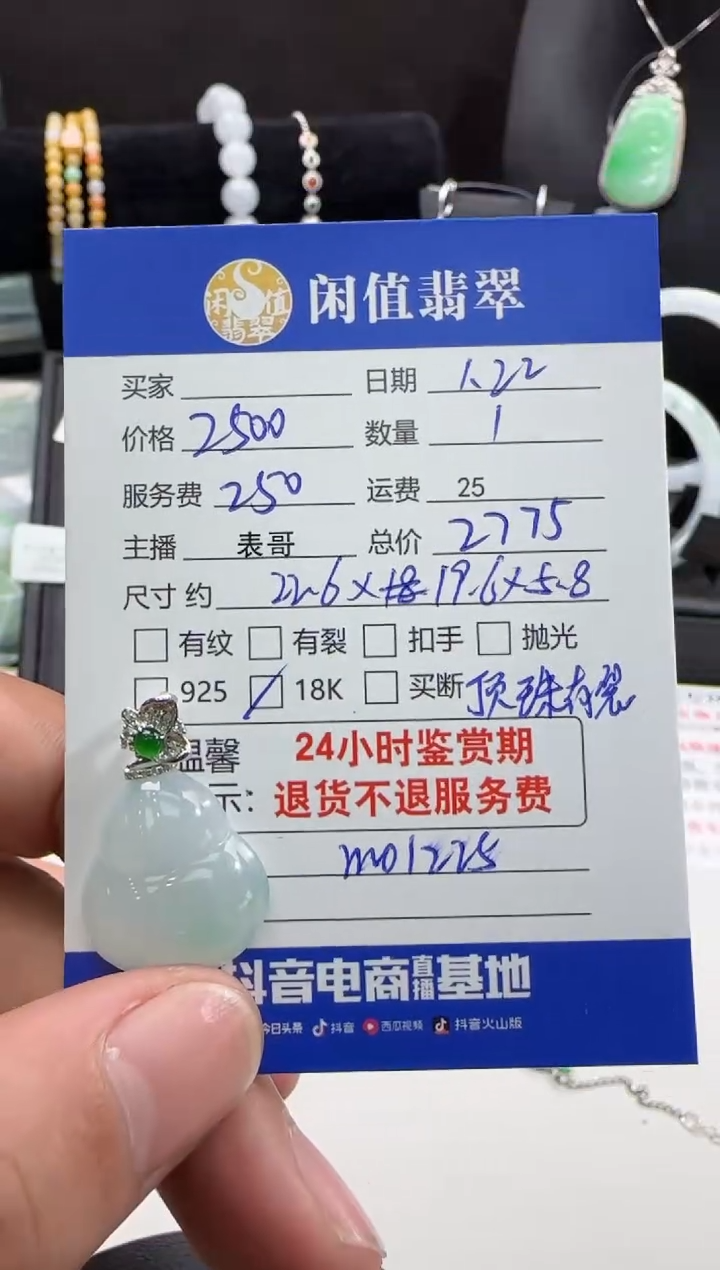 闲值翡翠
闲值翡翠
买家 日期 1.22
价格 2500 数量 1
服务费 250 运费 25
主播 表哥 总价 2775
尺寸 约 22.6×18 19.6×5.8
有纹 有裂 扣手 抛光
925 18K 买断 顶珠有裂
温馨 24小时鉴赏期
示: 退货不退服务费
m01225
抖音电商直播基地
今日头条 抖音 西瓜视频 抖音火山版